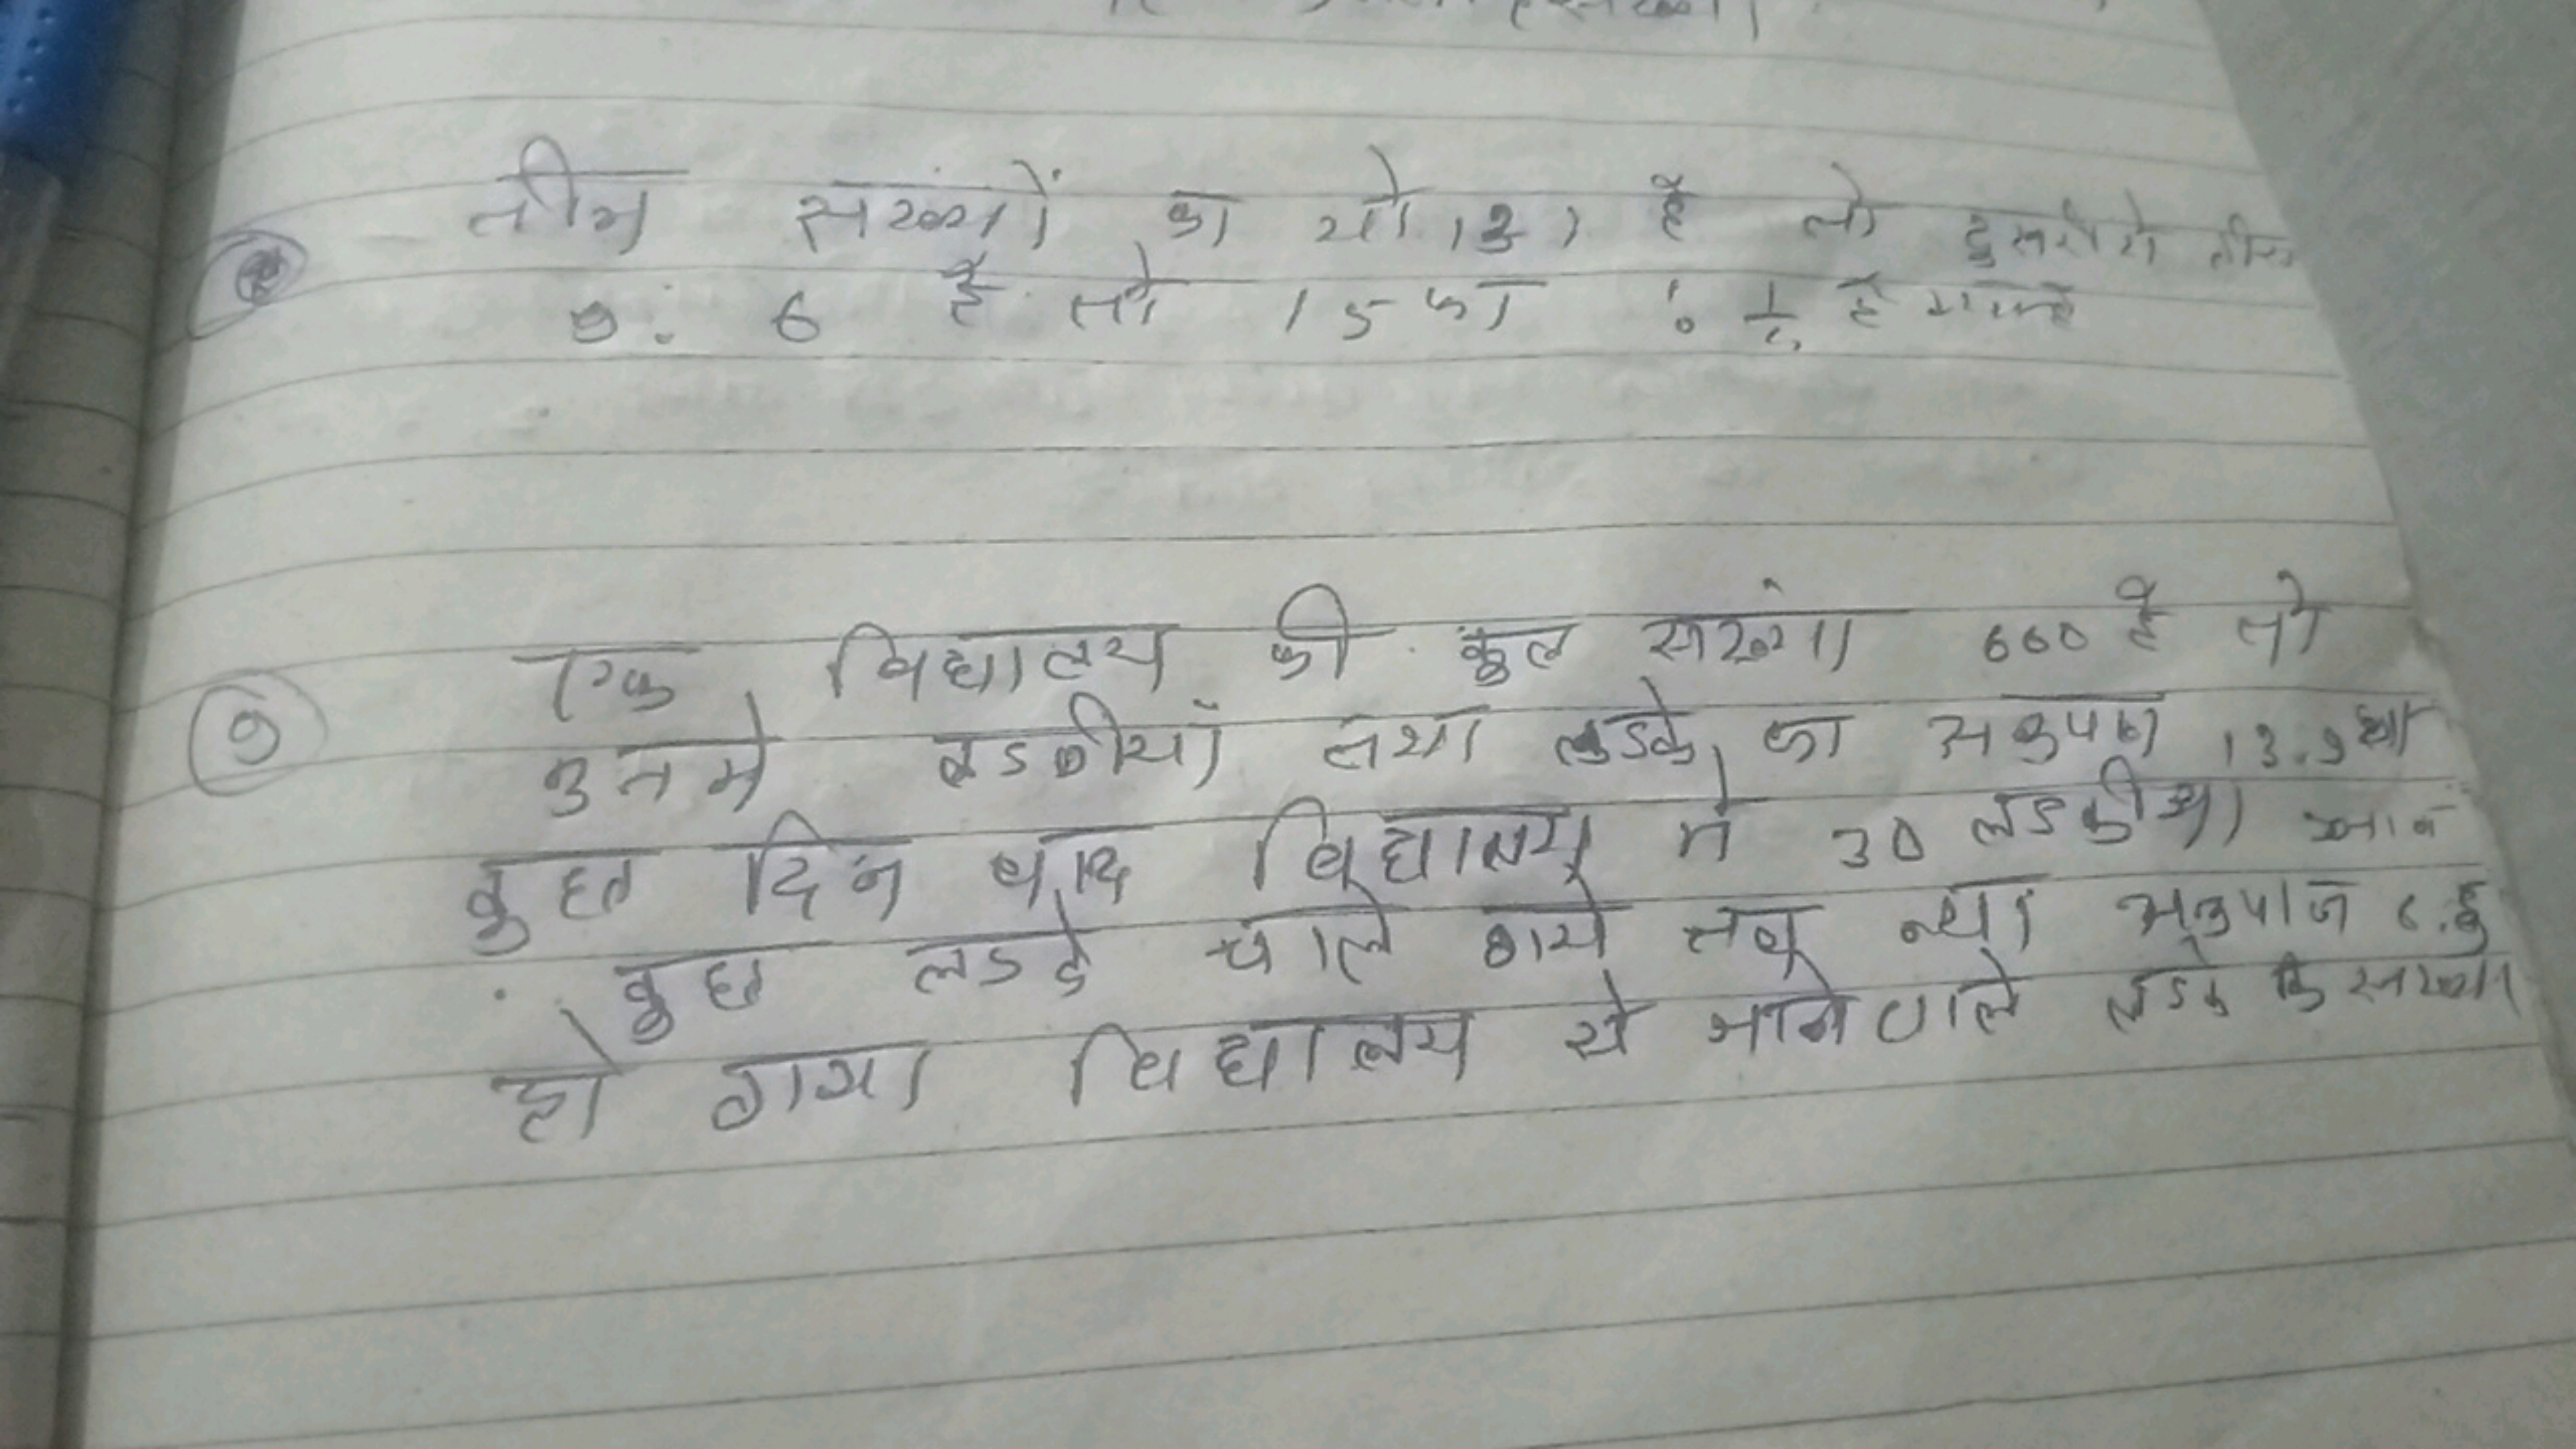 तीन सख्यों का यो 131 है तो दुसरो से तीस
9: 6 है तो 15 का : है
9 एक विद्यालय की कुल संख्या 660 है तो
उनमे लडकीयाँ तथा लडके का अनुपात 13:9 था
कुछ दिन बाद विद्यालय मे 30 लडकीया
कुछ लडके चाले गाये तब न्या अनुपात
हो गाया विद्यालय से जाने वाले लडके कि सख्या